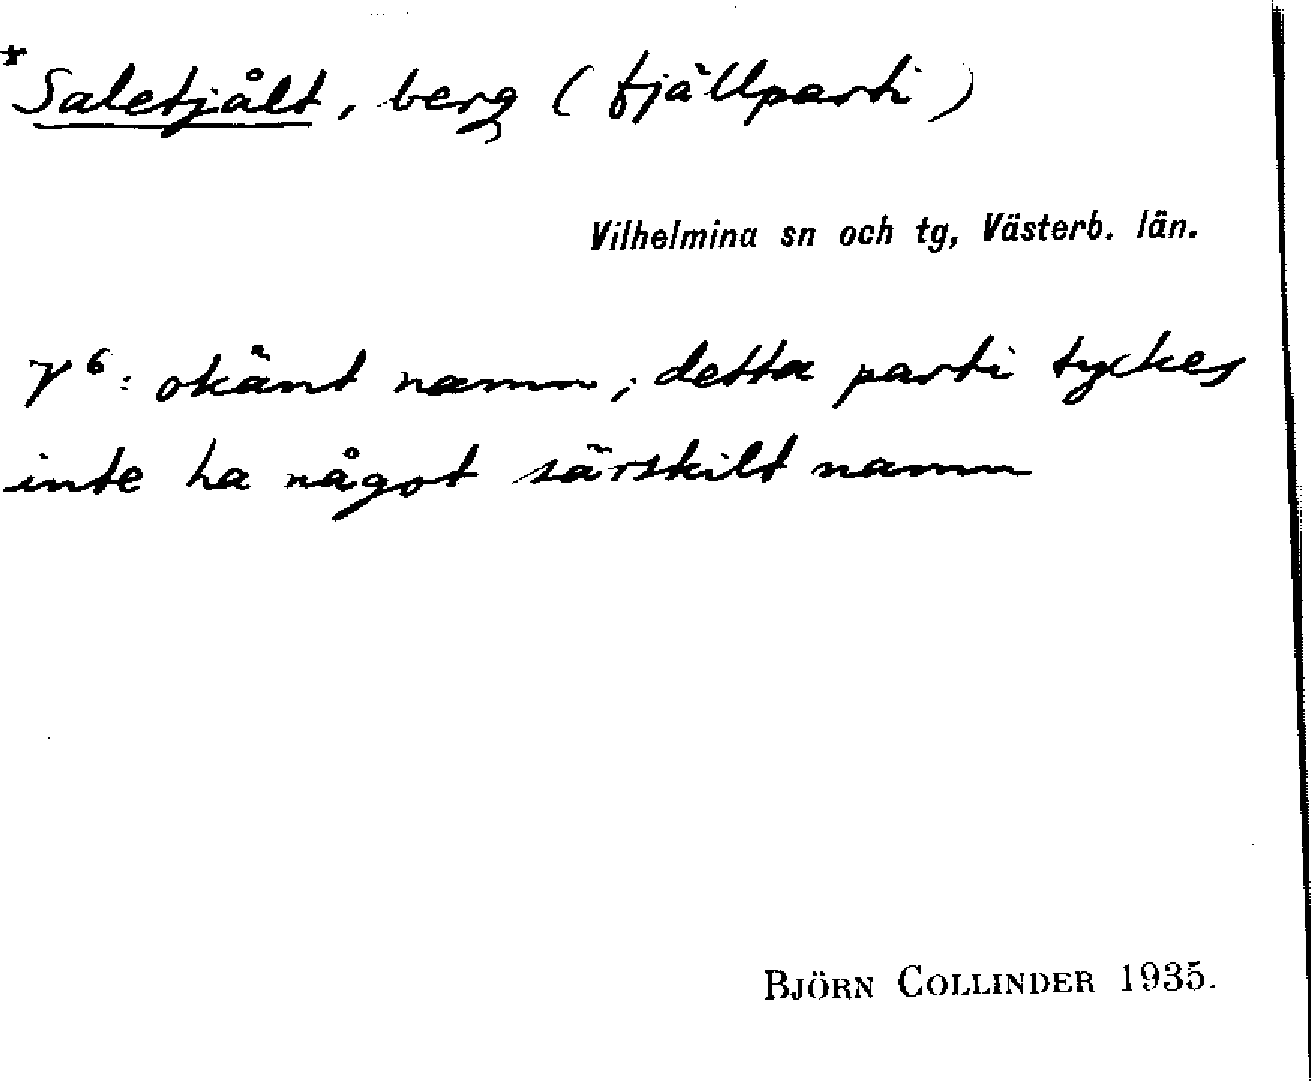 *Saletjålt, berg (fjällparti)
Vilhelmina sn och tg, Västerb. län.
γ⁶: okänt namn; detta parti tyckes
inte ha något särskilt namn
BJÖRN COLLINDER 1935.